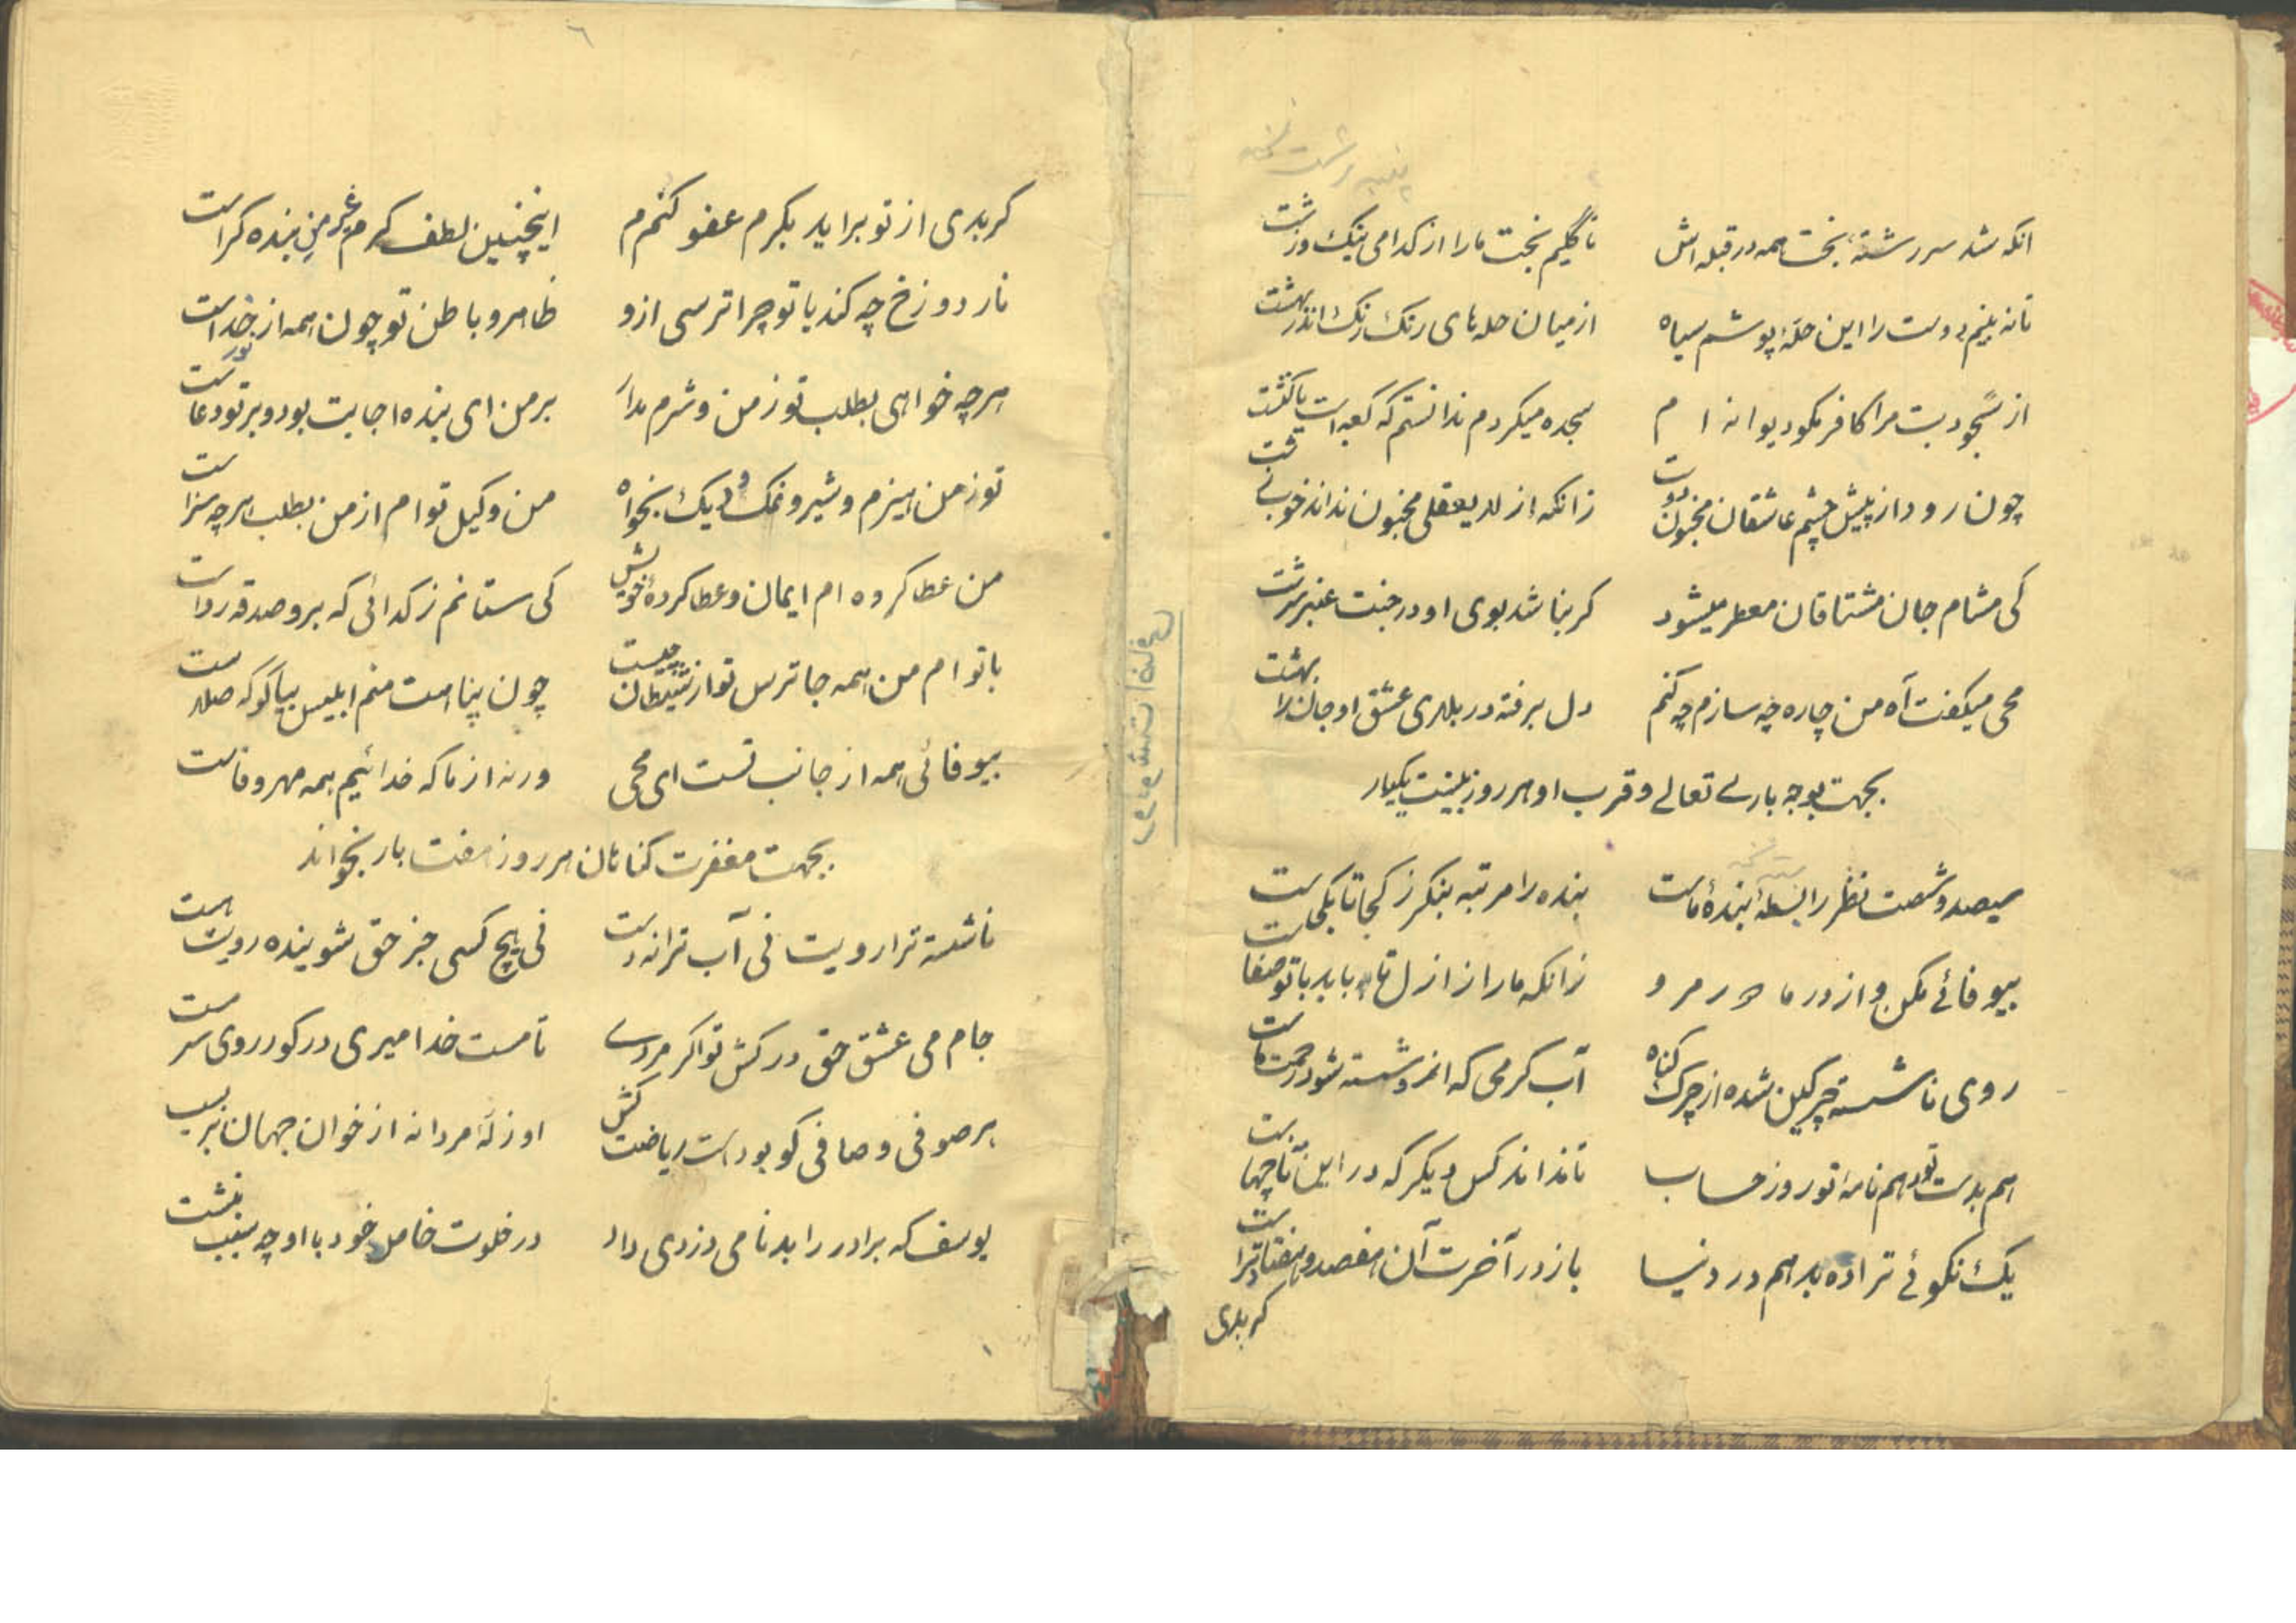 انکه شد سررشته بخت همه در قبله اش تا گلیم بخت ما را از کدامی پنبک و رشت
تا نه بینم دوست را این حله پوشم سیاه از میان حله های رنک رنک اندر بهشت
از سجود بت مرا کافر مگو دیوانه ام سجده میکردم ندانستم که کعبه است یا کنشت
چون رود از پیش چشم عاشقان مجنون دوست زانکه از لایعقلی مجنون نداند خوب
کی مشام جان مشتاقان معطر میشود کر نباشد بوی او در جنت عنبر سرشت
محی میکفت آه من چاره چه سازم چه کنم دل برفته در بلای عشق او جان را بهشت
بجهت توجه باری تعالے و قرب او هر روز یکبار
سیصد و شصت نظر رابطه بندهٔ ماست بنده را مرتبه بنکر ز کجا تا بکجاست
بیوفائے مکن و از در ما مرو زانکه ما را ز ازل تا به ابد با تو صفاست
روی ناشسته چرکین شده از چرک کناه آب کرمی که شسته شود رحمت ماست
هم بدست تو دهم نامه تو روز حساب تا نداند کس دیکر که در این نامه
یک نکوئے ترا ده بدهم در دنیا باز در آخرت آن هفصد و هفتاد تراست
کر بدی
غزلان شمس
٦
کر بدی از تو براید بکرم عفو کنم اینچنین لطف کرم غیر من بنده کراست
نار دوزخ چه کند با تو چرا ترسی ازو ظاهر و باطن تو چون همه از نور خداست
هرچه خواهی بطلب تو ز من و شرم مدار بر من ای بنده اجابت بود و بر تو دعاست
تو ز من هیزم و شیر و نمک و دیک بخواه من وکیل توام از من بطلب هرچه سزاست
من عطا کرده ام ایمان و عطا کردهٔ خویش کی ستانم ز کدائی که برو صدقه رواست
با توام من همه جا ترس تو از شیطان چیست چون پناهت منم ابلیس بیا کو که
بیوفائی همه از جانب تست ای محی ورنه از ما که خدائیم همه مهر و فاست
بجهت مغفرت کناهان هر روز هفت بار بخواند
ناشسته ترا رویت نی آب ترا نه دست نی هیچ کسی جز حق شوینده رویت هست
جام می عشق حق درکش تو اکر مردے تا مست خدا میری در کور روی سرمست
هر صوفی و صافی کو بوداست ریاضت کش او زلهٔ مردانه از خوان جهان بربست
یوسف که برادر را بدنامی دزدی داد در خلوت خاص خود با او چه سبب بنشست